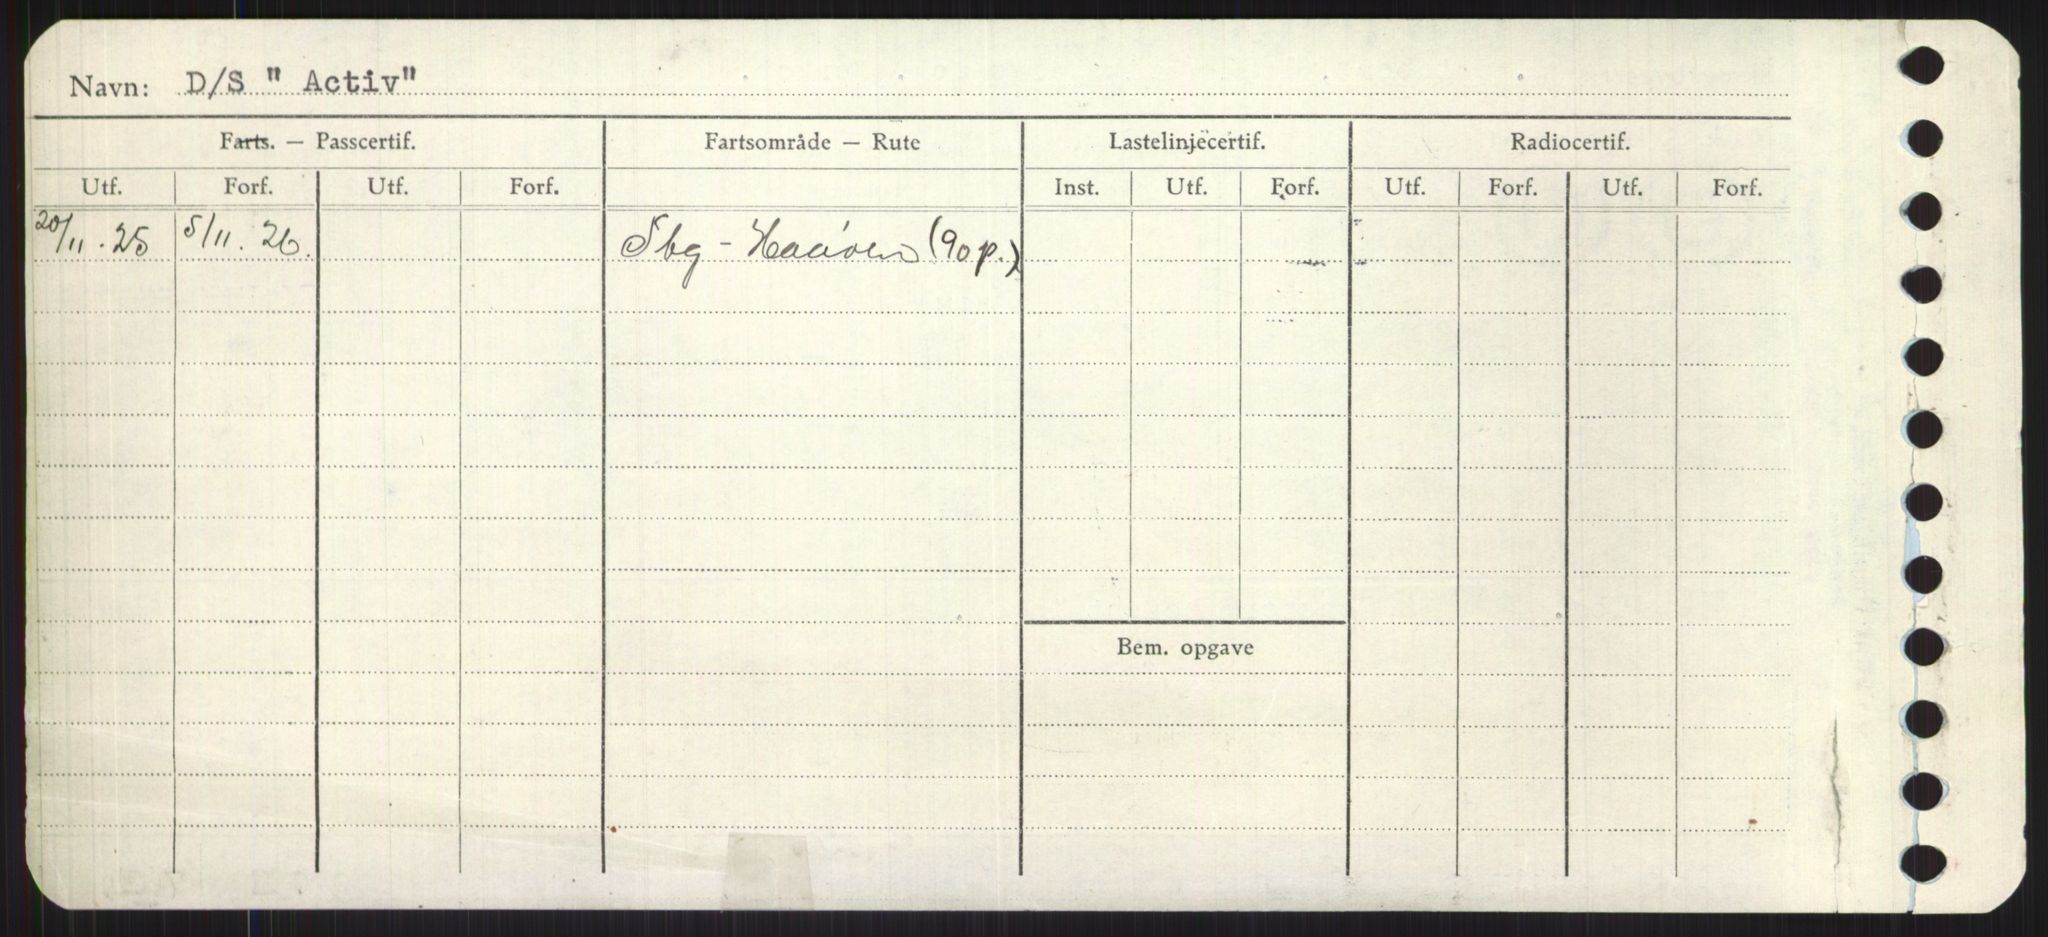 Navn: D/S " Activ"
Farts. — Passcertif. Fartsområde — Rute Lastelinjecertif. Radiocertif.
Utf. Forf. Utf. Forf. Inst. Utf. Forf. Utf. Forf. Utf. Forf.
20/11. 25 5/11. 26. Sbg - (90 p.)
Bem. opgave